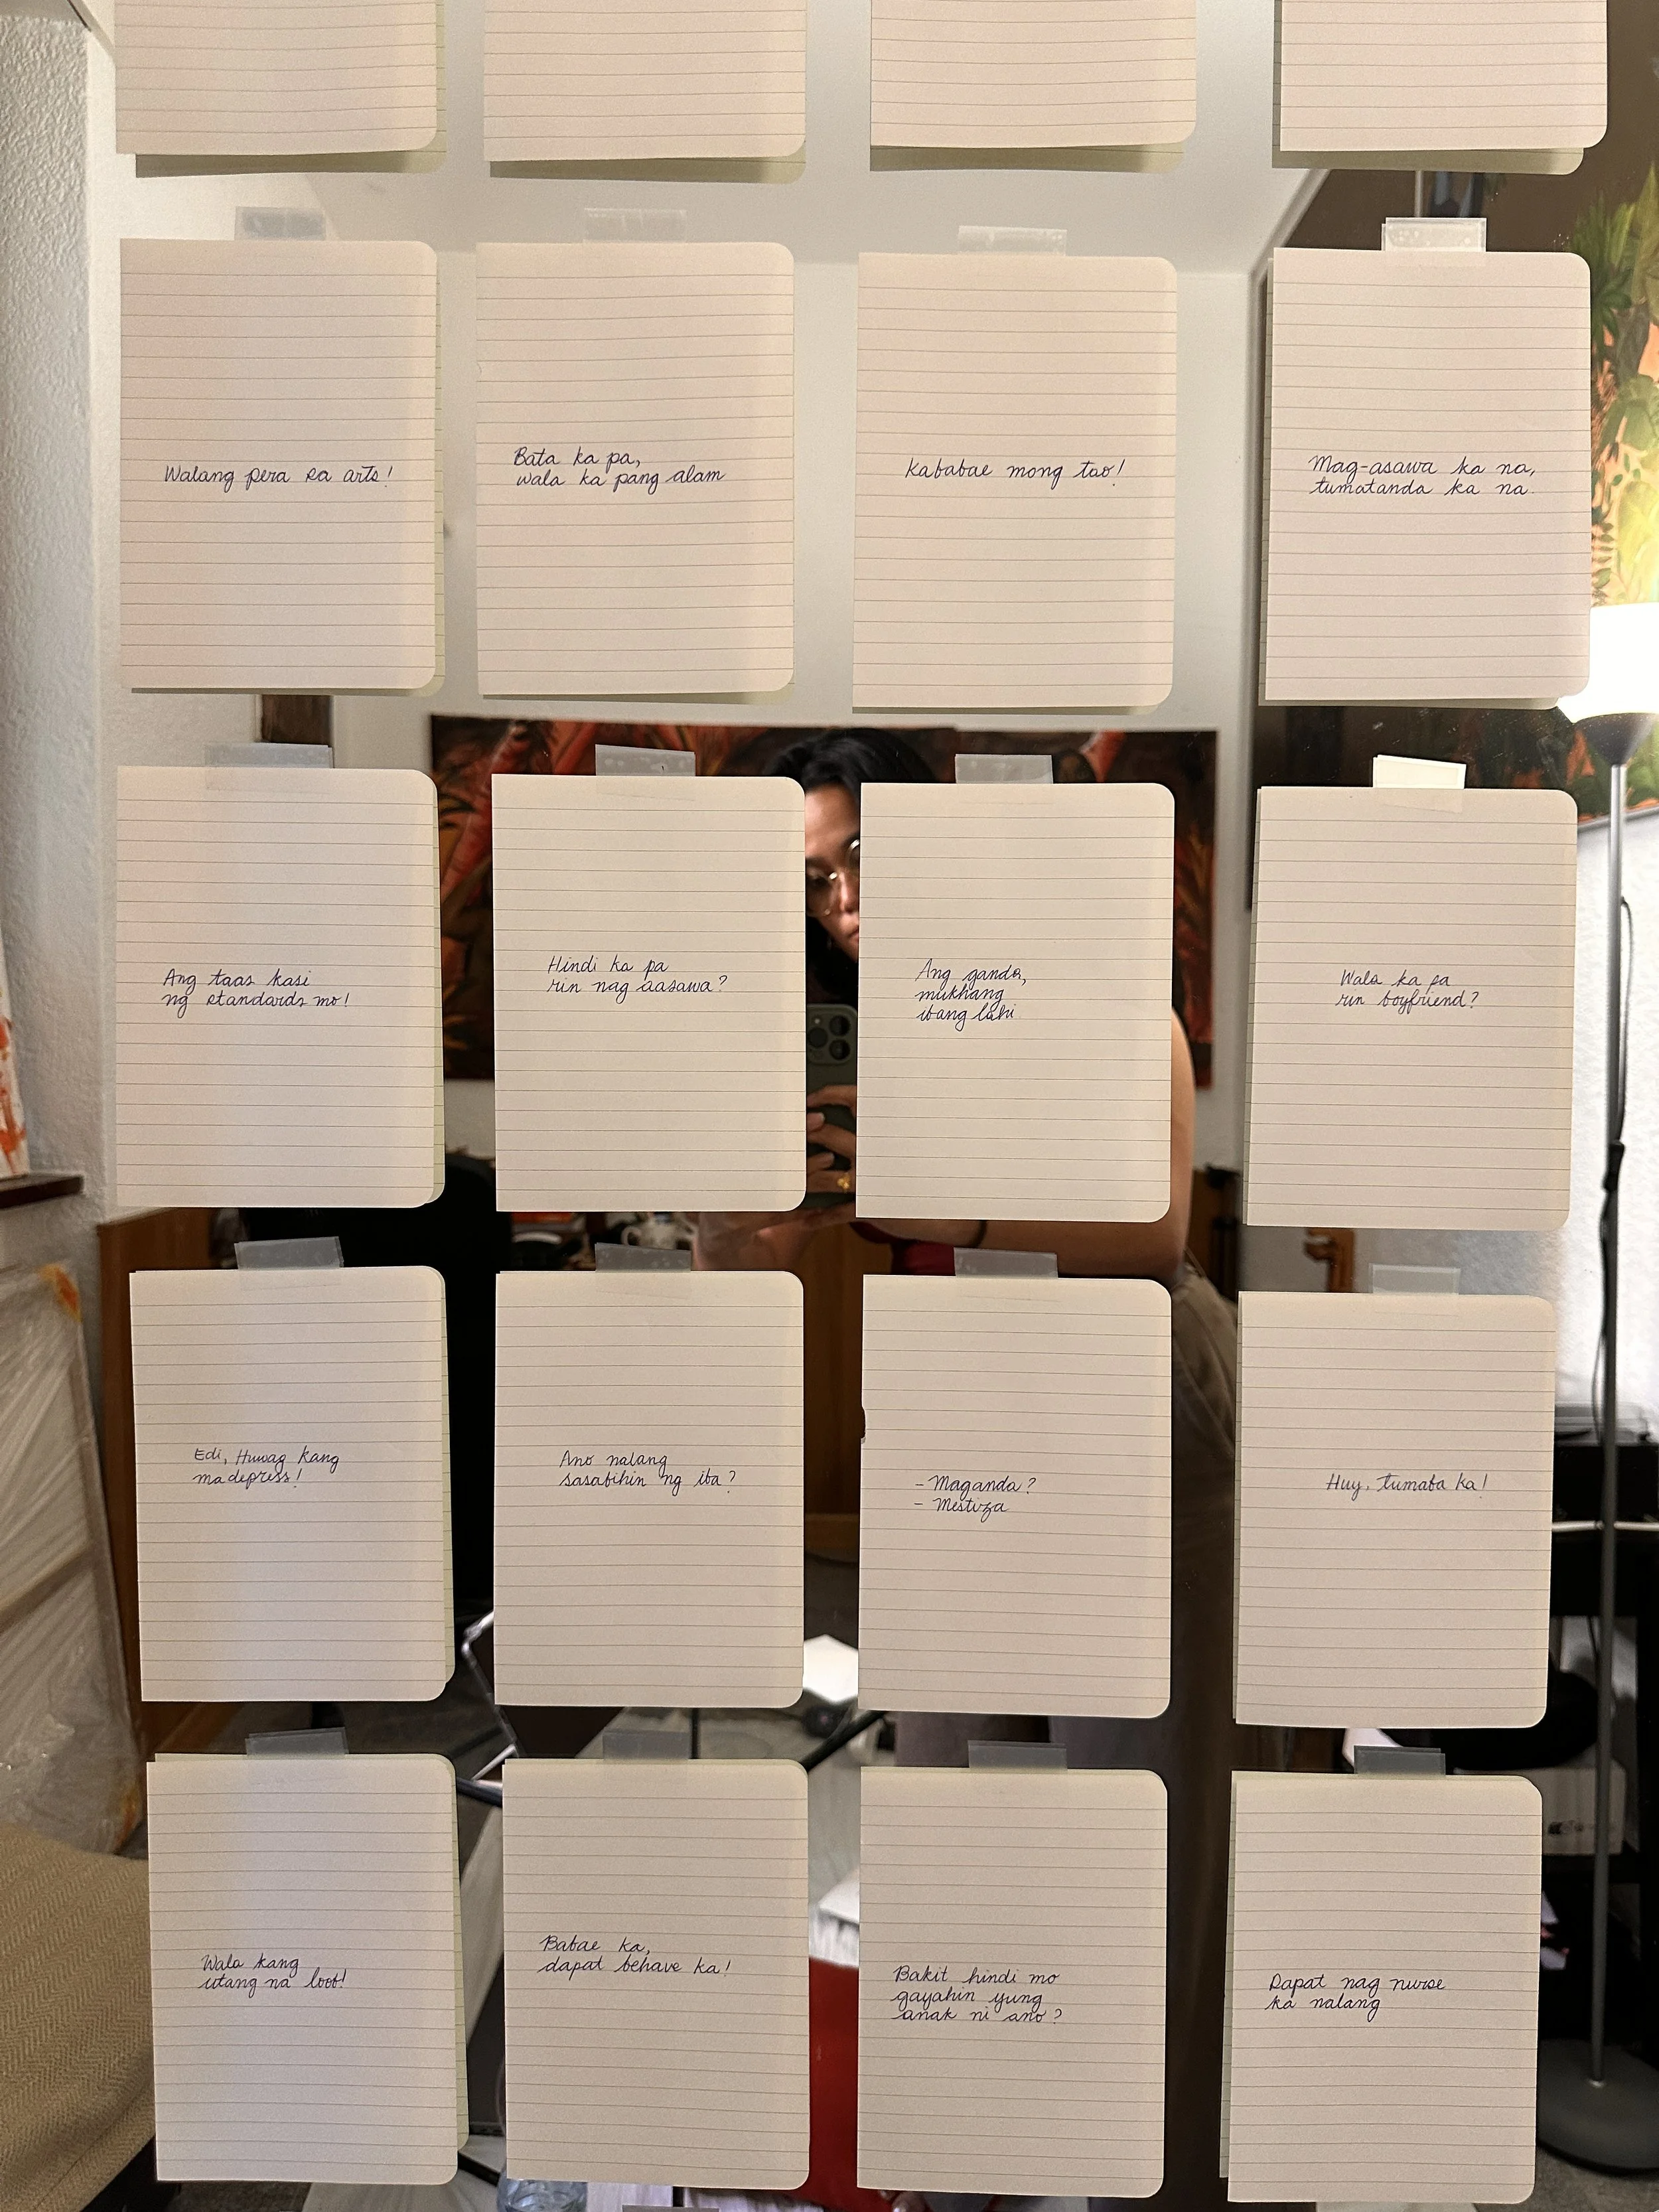 Walang pera sa arts!
Bata ka pa,
wala ka pang alam
Kababae mong tao!
Mag-asawa ka na,
tumatanda ka na.
Ang taas kasi
ng standards mo!
Hindi ka pa
rin nag aasawa?
Ang ganda,
mukhang
ibang lahi
Wala ka pa
rin boyfriend?
Edi, Huwag kang
madepress!
Ano nalang
sasabihin ng iba?
- Maganda?
- Mestiza
Huy, tumaba ka!
Wala kang
utang na loob!
Babae ka,
dapat behave ka!
Bakit hindi mo
gayahin yung
anak ni ano?
Dapat nag nurse
ka nalang